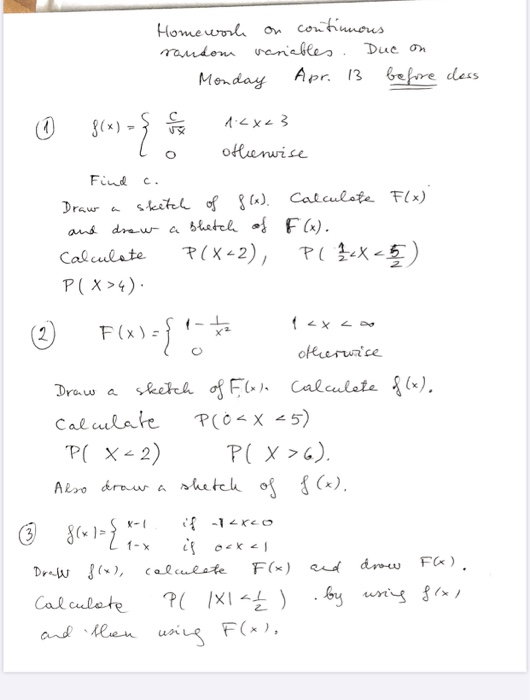 Homework on continuous
random variables. Due on
Monday Apr. 13 before class
(1) f(x) = { c/√x 1 < x < 3
0 otherwise
Find c.
Draw a sketch of f(x). Calculate F(x)
and draw a sketch of F(x).
Calculate P(X<2), P(1/2<X<5/2)
P(X>4).
(2) F(x) = { 1 - 1/x² 1 < x < ∞
0 otherwise
Draw a sketch of F(x). Calculate f(x).
Calculate P(0<X<5)
P(X<2) P(X>6).
Also draw a sketch of f(x).
(3) f(x) = { x-1 if -1<x<0
1-x if 0<x<1
Draw f(x), calculate F(x) and draw F(x).
Calculate P(|X|<1/2). by using f(x)
and then using F(x).